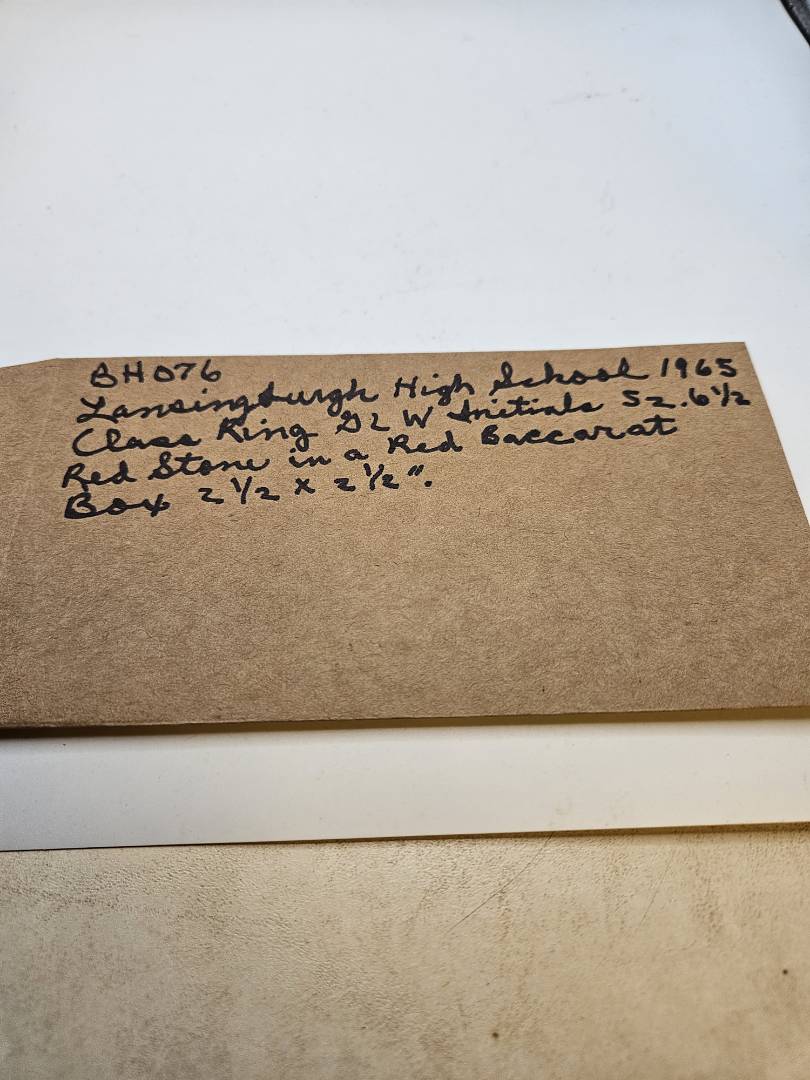 BH076
Lansingburgh High School 1965
Class Ring GLW Initials Sz. 6 1/2
Red Stone in a Red Baccarat
Box 2 1/2 x 2 1/2".